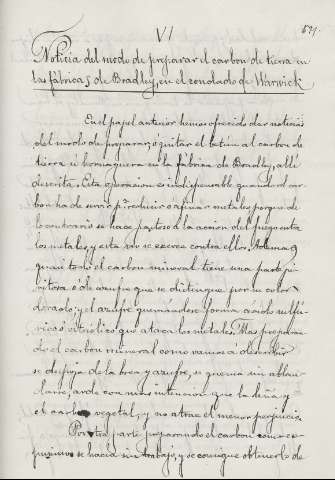 VI
Noticia del modo de preparar el carbon de tierra en
las fábricas de Bradley, en el condado de Warwick
En el papel anterior hemos ofrecido dar noticia
del modo de preparar, ó quitar el betun al carbon de
tierra ú hornaguera en la fábrica de Bradley, allí
descrita. Esta operacion es indispensable quando el car
bon ha de servir p.ª reducir ó afinar metales porque de
lo contrario se hace pastoso á la accion del fuego
los metales, y esta no se exerce contra ellos. Ademas
quasi todo el carbon mineral tiene una parte pi
ritosa ó de azufre que se distingue por su color
dorado; y el azufre quemándose forma acido sulfú
rico ó vitriólico que ataca los metales. Mas preparan
do el carbon mineral como vamos á describir
se despoja de la brea y azufre, se quema sin ablan
darse, arde con mas intension que la leña y
el carbon vegetal, y no atrae el menor perjuicio.
Por otra parte preparando el carbon como
se hacia sin trabajo, y se consigue obtenerlo de